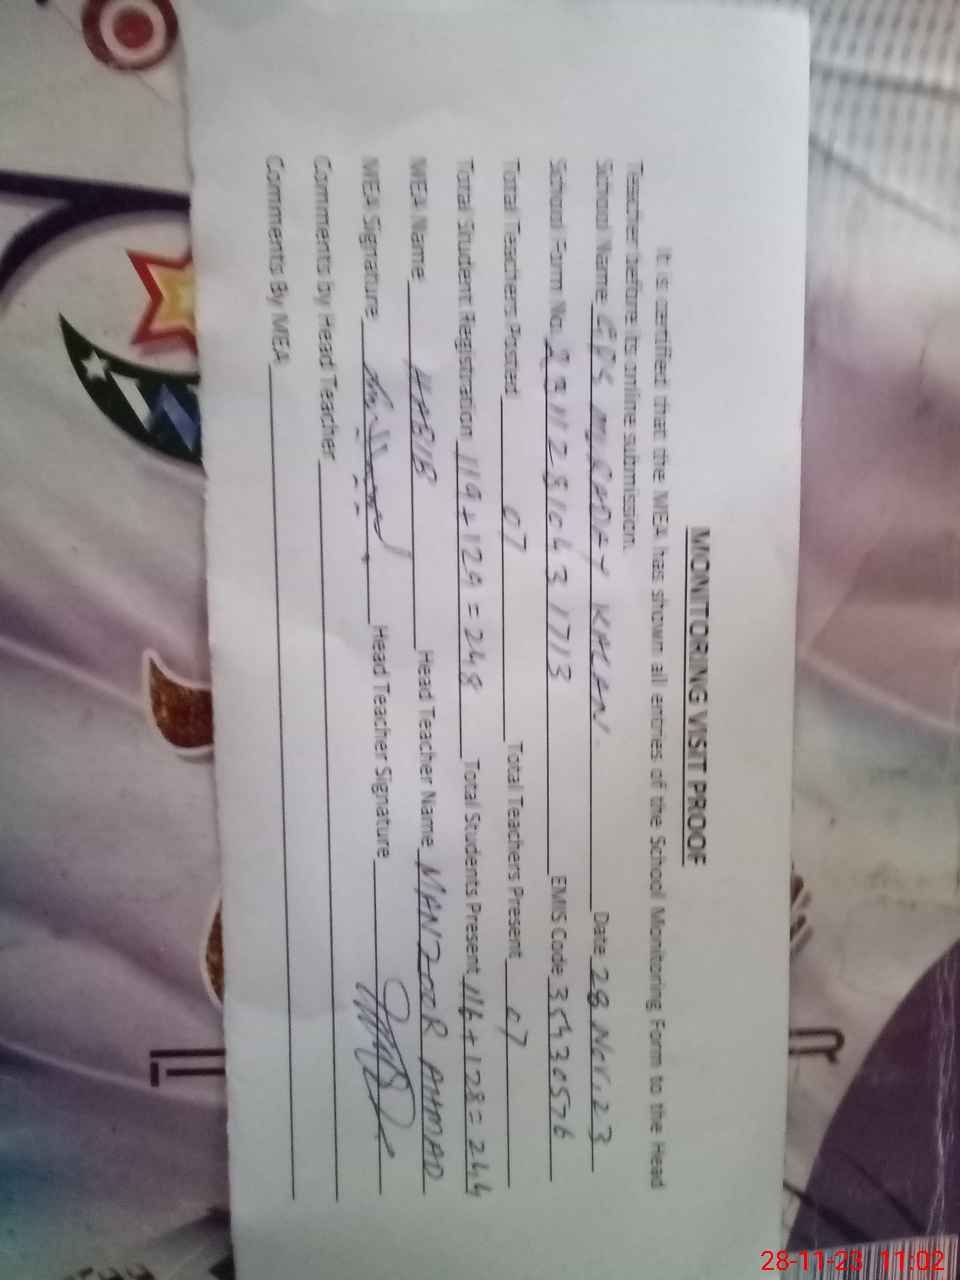 MONITORING VISIT PROOF
It is certified that the MEA has shown all entries of the School Monitoring Form to the Head
Teacher before its online submission.
School Name GPS MURADAY KALAN Date 28 Nov. 23
School Form No. EMIS Code 35430576
Total Teachers Posted 07 Total Teachers Present 07
Total Student Registration 119+129=248 Total Students Present 116+128=244
MEA Name HABIB Head Teacher Name MANZOOR AHMAD
MEA Signature Head Teacher Signature
Comments by Head Teacher
Comments By MEA
28-11-23 11:02